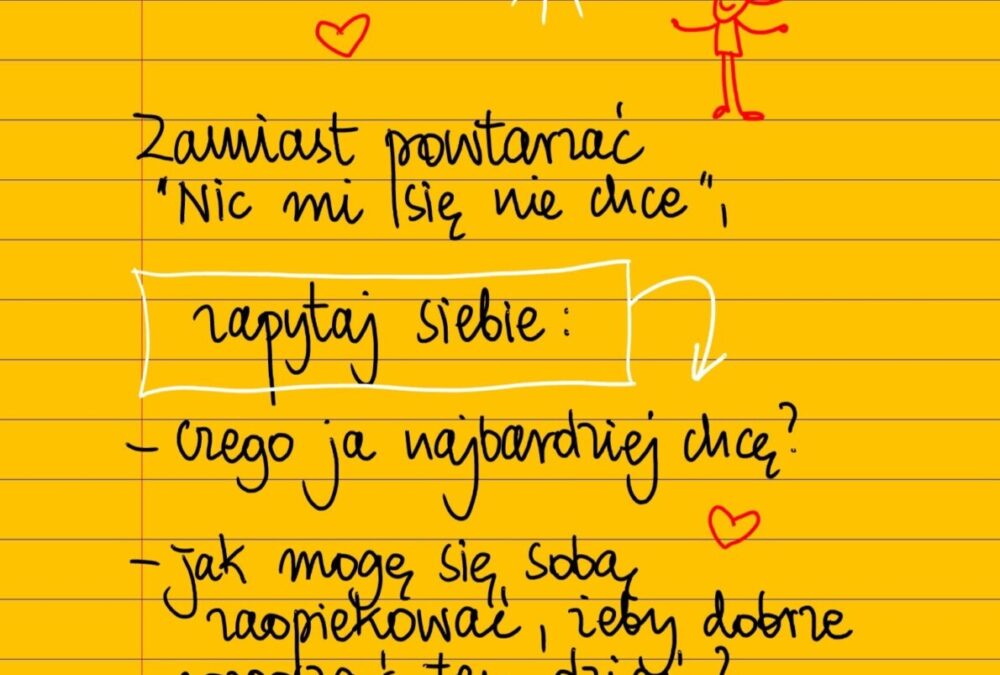 Zamiast powtarzać
"Nic mi się nie chce",
zapytaj siebie:
- czego ja najbardziej chcę?
- jak mogę się sobą
zaopiekować, żeby dobrze
ten dzień?